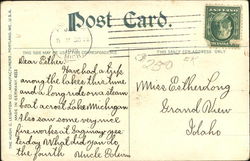 Post Card.
THIS SIDE MAY BE USED FOR CORRESPONDENCE
THIS SPACE FOR ADDRESS ONLY
Dear Esther:
Have had a
among the lakes this time
and a long ride on a steam
boat across Lake Michigan
Also saw some very nice
fire works at Saginaw yes-
terday What did you do
the fourth Uncle
Miss Esther Long
Grand View
Idaho
THE HUGH C. LEIGHTON CO., MANUFACTURERS, PORTLAND, ME. U.S.A.